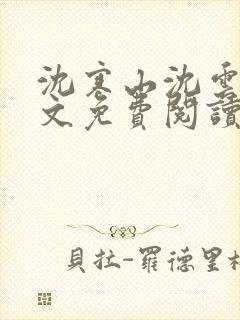 沈寒山沈雲
文免費閱讀
貝拉-羅德里